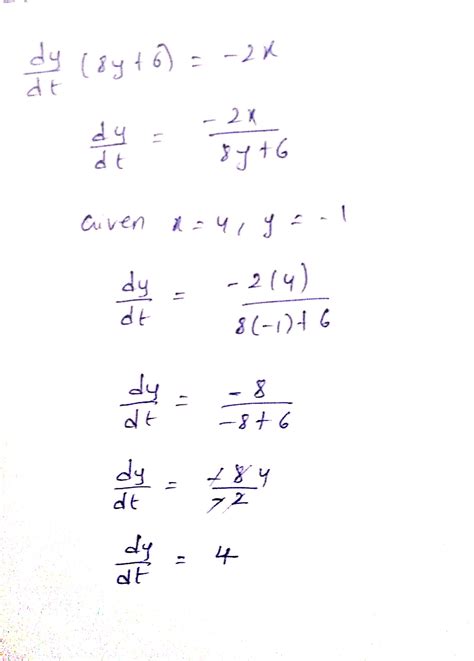 dy/dt (8y+6) = -2x
dy/dt = -2x/8y+6
Given x=4, y=-1
dy/dt = -2(4)/8(-1)+6
dy/dt = -8/-8+6
dy/dt = -8/-2 4
dy/dt = 4